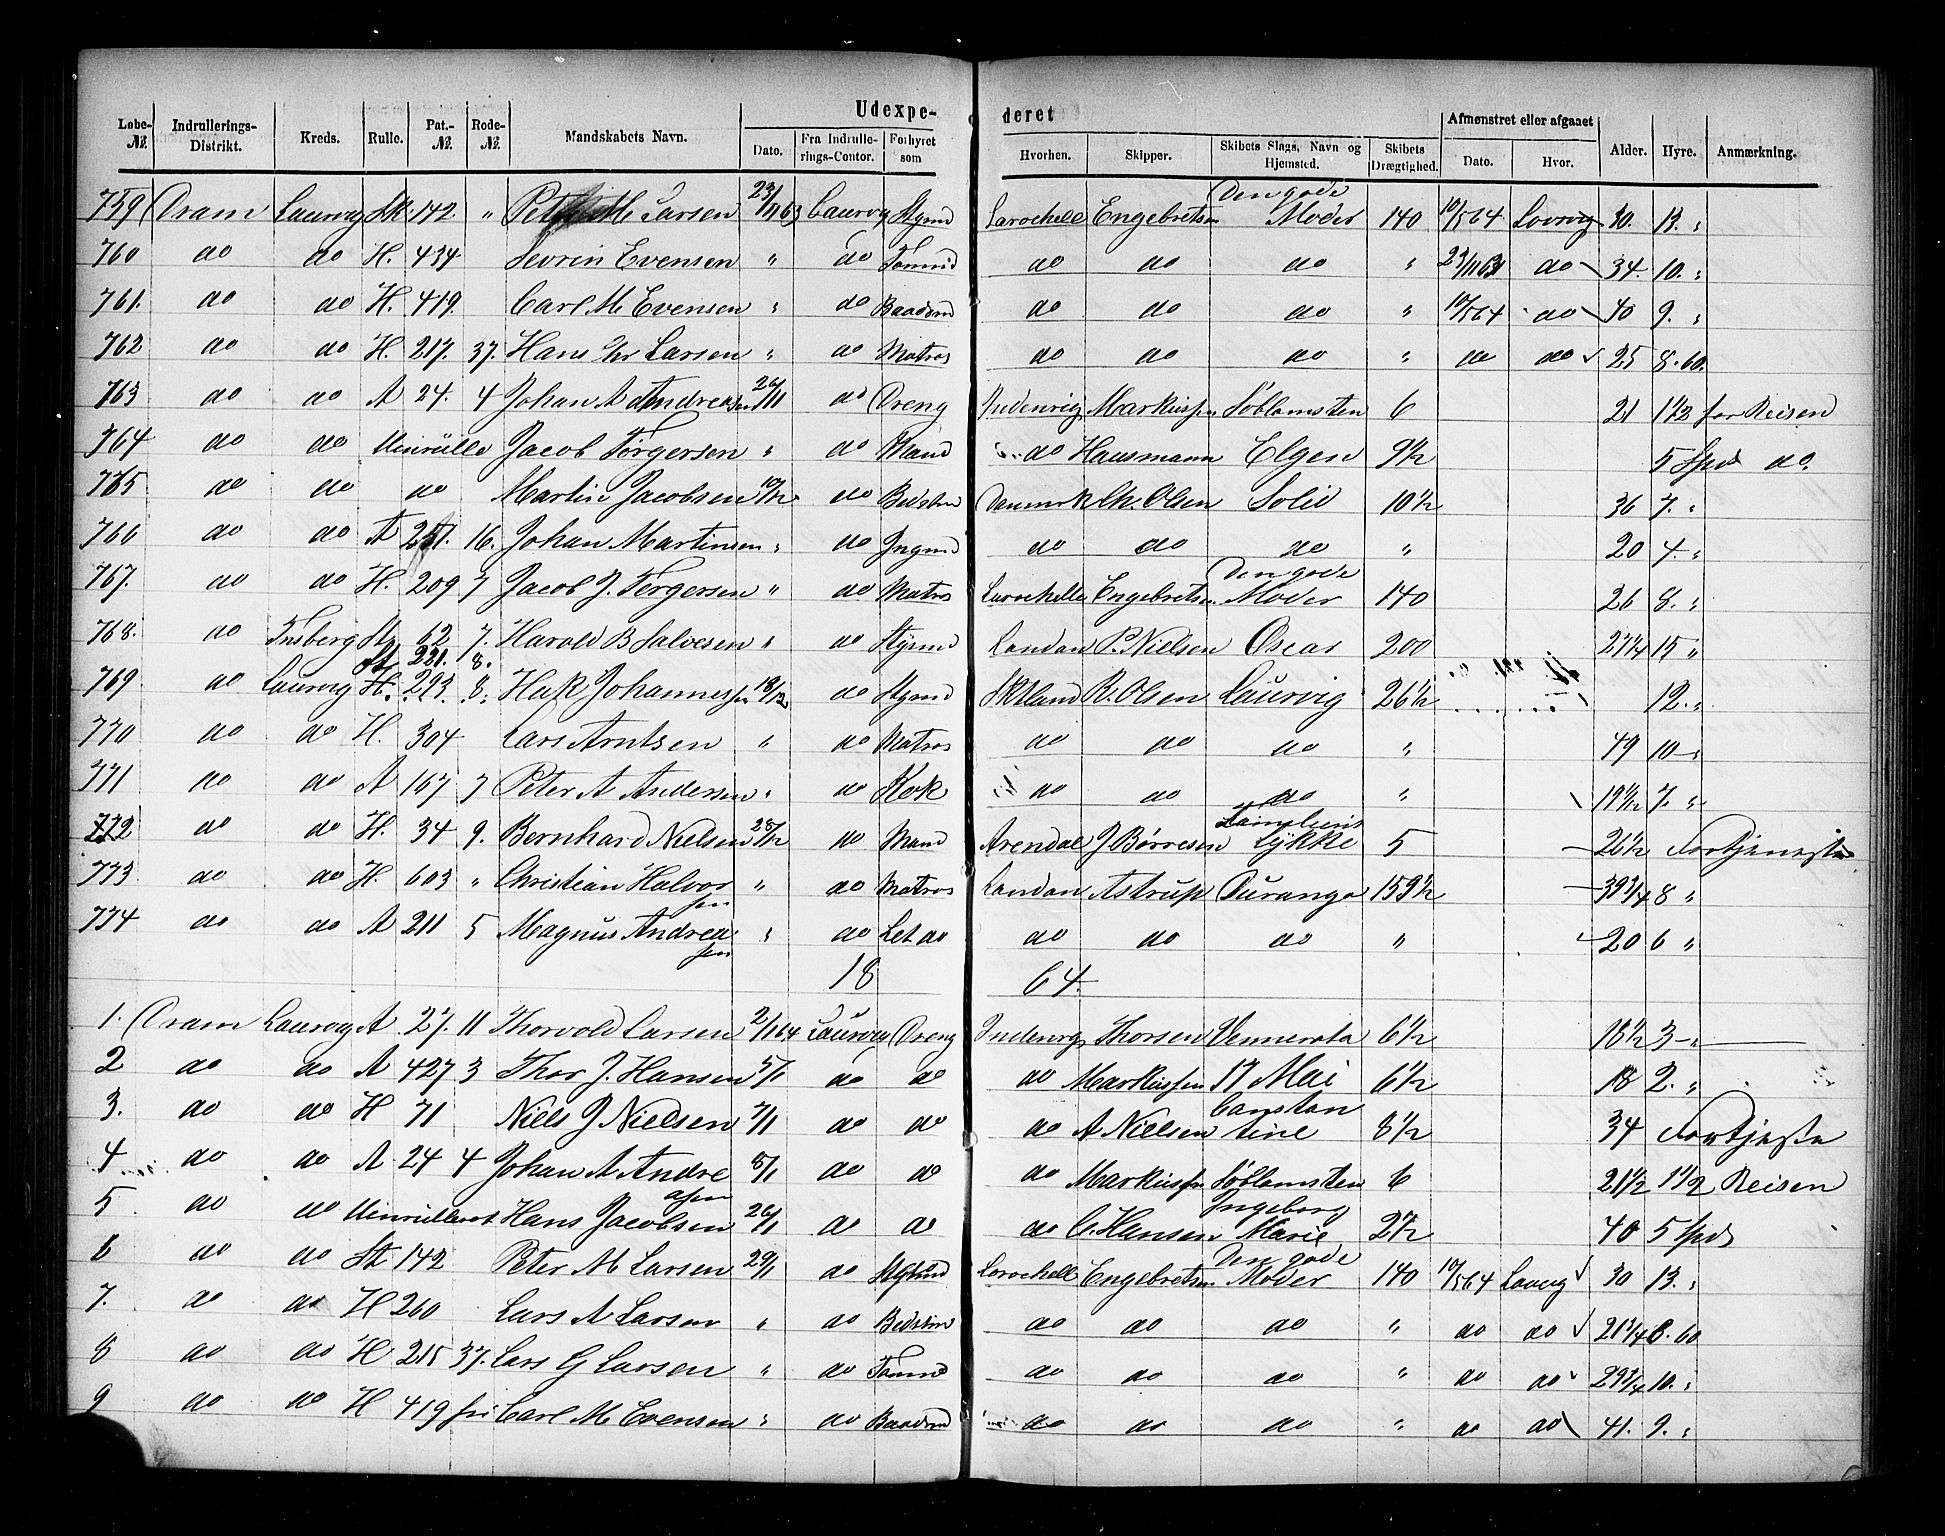 Udexpe- deret
Løbe- No. Indrullerings- Distrikt. Kreds. Rulle. Pat.- No. Rode- No. Mandskabets Navn. Dato. Fra Indrulle- rings-Contor. Forhyret som Hvorhen. Skipper. Skibets Slags, Navn og Hjemsted. Skibets Drægtighed. Afmønstret eller afgaaet Dato. Hvor. Alder. Hyre. Anmærkning.
759 Dram Laurvig St 142 " Peter M Larsen 23/11 63 Laurvig Stymd Larochelle Engebretsen Den gode Moder 140 10/5 64 Lovrvig 30. 13. "
760 do do H. 434 Sevrin Evensen " do Tømmd do do do " 23/11 63 do 34. 10. "
761. do do H. 419. Carl M Evensen " do Baadsmd do do do " 10/5 64 do 40 9. "
762 do do H. 217. 37. Hans Chr Larsen " do Matros do do do " do do 25 8. 60.
763 do do A 24. 4 Johan A Andreasen 26/11 do Dreng Indenrigs Markussen Søblomsten 6 21 1 1/2 for Reisen
764 do do Uinrulle Jacob Tørgersen " do Mand do Hausmann Elgen 9 1/2 5 Spd do.
765 do do do Martin Jacobsen 10/12 do Bedstm Danmark Chr. Olsen Solid 10 1/2 36 7. "
766 do do A 251. 16. Johan Martinsen " do Jngmd do do do " 20 4. "
767. do do H. 209 7 Jacob J. Tørgersen " do Matros Larochelle Engebretsen Den gode Moder 140 26 8. "
768. do Tnsberg St 62 7. Harald B Salvesen " do Stymd London P. Nielsen Oscar 200 27 1/4 15 "
St 221. 8.
769 do Laurvig H. 293. 8. Hak Johannessen 18/12 do Stymd Sktland R. Olsen Laurvig 26 1/2 12. "
770 do do H. 304 Lars Arntsen " do Matros do do do " 49 10 "
771 do do A 167 7 Peter A Andersen " do Kok do do do " 19 1/12 7 "
772 do do H. 34 9. Bernhard Nielsen 28/12 do Mand Arendal J Børresen Lykke 5 26 1/2 Fortjeneste
773 do do H. 603 " Christian Halvorsen " do Matros London Astrup Durango 159 1/2 39 3/4 8 "
774 do do A 211 5 Magnus Andreasen " do Let do do do do " 20 6 "
18 64.
1. Dram Laurvig A 27. 11 Thorvald Larsen 2/1 64 Laurvig Dreng Indenrgs Thorsen Vennerata 6 1/2 18 1/2 3 "
2 do do A 427 3 Thor J. Hansen 5/1 do do do Markussen 17 Mai 6 1/2 18 2. "
3. do do H 71 Niels J Nielsen 7/1 do do do A Nielsen Constantine 8 1/2 34 Fortjeste
4 do do A 24 4 Johan A Andreasen 8/1 do do do Markussen Søblomsten 6 21 1/2 1 1/2 Reisen
5 do do Uinrulleret Hans Jacobsen 26/1 do do do C. Hansen Ingeborg Marie 2 1/2 40 5 Spd
6 do do St 142 Peter M Larsen 29/1 do Stymd Larochelle Engebretsen Den gode Moder 140 10/5 64 Lauvg 30 13. "
7. do do H 260 Lars A Larsen " do Bedstm do do do " do do 21 3/4 8. 60
8 do do H 215 37. Lars G Larsen " do Tømmd do do do " do do 29 3/4 10. "
9 do do H 419 fri Carl M Evensen " do Baadsmd do do do " do do 41. 9. "